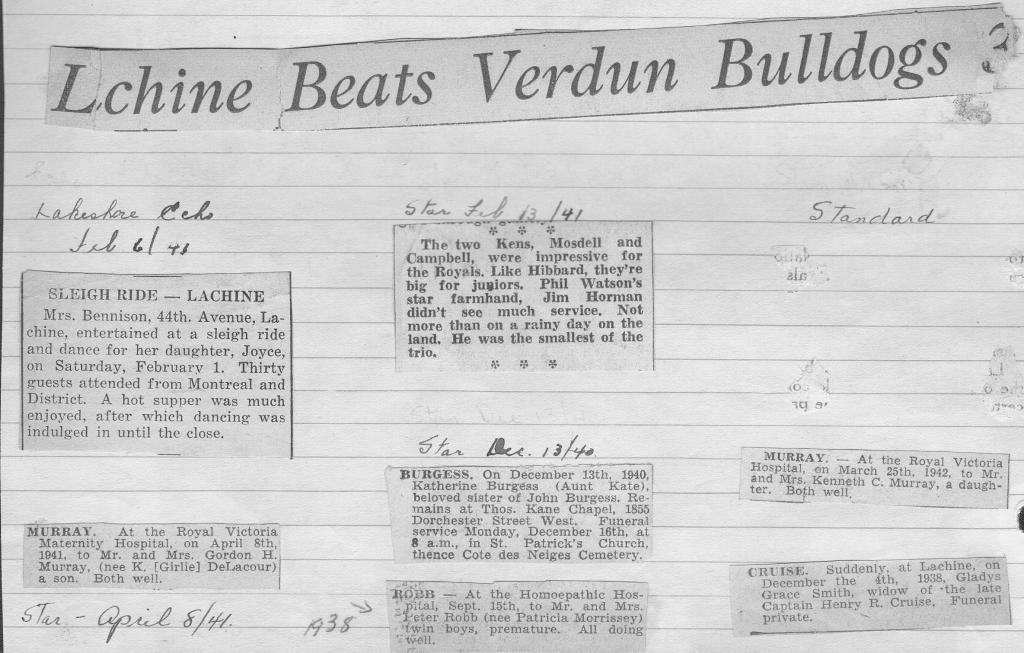 Lchine Beats Verdun Bulldogs
Lakeshore Echo
Feb 6/41
SLEIGH RIDE — LACHINE
Mrs. Bennison, 44th. Avenue, La-
chine, entertained at a sleigh ride
and dance for her daughter, Joyce,
on Saturday, February 1. Thirty
guests attended from Montreal and
District. A hot supper was much
enjoyed, after which dancing was
indulged in until the close.
MURRAY. At the Royal Victoria
Maternity Hospital, on April 8th,
1941, to Mr. and Mrs. Gordon H.
Murray, (nee K. [Girlie] DeLacour)
a son. Both well.
Star - April 8/41.
Star Feb 13/41
* * *
The two Kens, Mosdell and
Campbell, were impressive for
the Royals. Like Hibbard, they're
big for juniors. Phil Watson's
star farmhand, Jim Horman
didn't see much service. Not
more than on a rainy day on the
land. He was the smallest of the
trio.
* * *
Star Dec. 13/40.
BURGESS. On December 13th, 1940,
Katherine Burgess (Aunt Kate),
beloved sister of John Burgess. Re-
mains at Thos. Kane Chapel, 1855
Dorchester Street West. Funeral
service Monday, December 16th, at
8 a.m., in St. Patrick's Church,
thence Cote des Neiges Cemetery.
1938
ROBB — At the Homoepathic Hos-
pital, Sept. 15th, to Mr. and Mrs.
Peter Robb (nee Patricia Morrissey)
twin boys, premature. All doing
well.
Standard
MURRAY. — At the Royal Victoria
Hospital, on March 25th, 1942, to Mr.
and Mrs. Kenneth C. Murray, a daugh-
ter. Both well.
CRUISE. Suddenly, at Lachine, on
December the 4th, 1938, Gladys
Grace Smith, widow of the late
Captain Henry R. Cruise. Funeral
private.